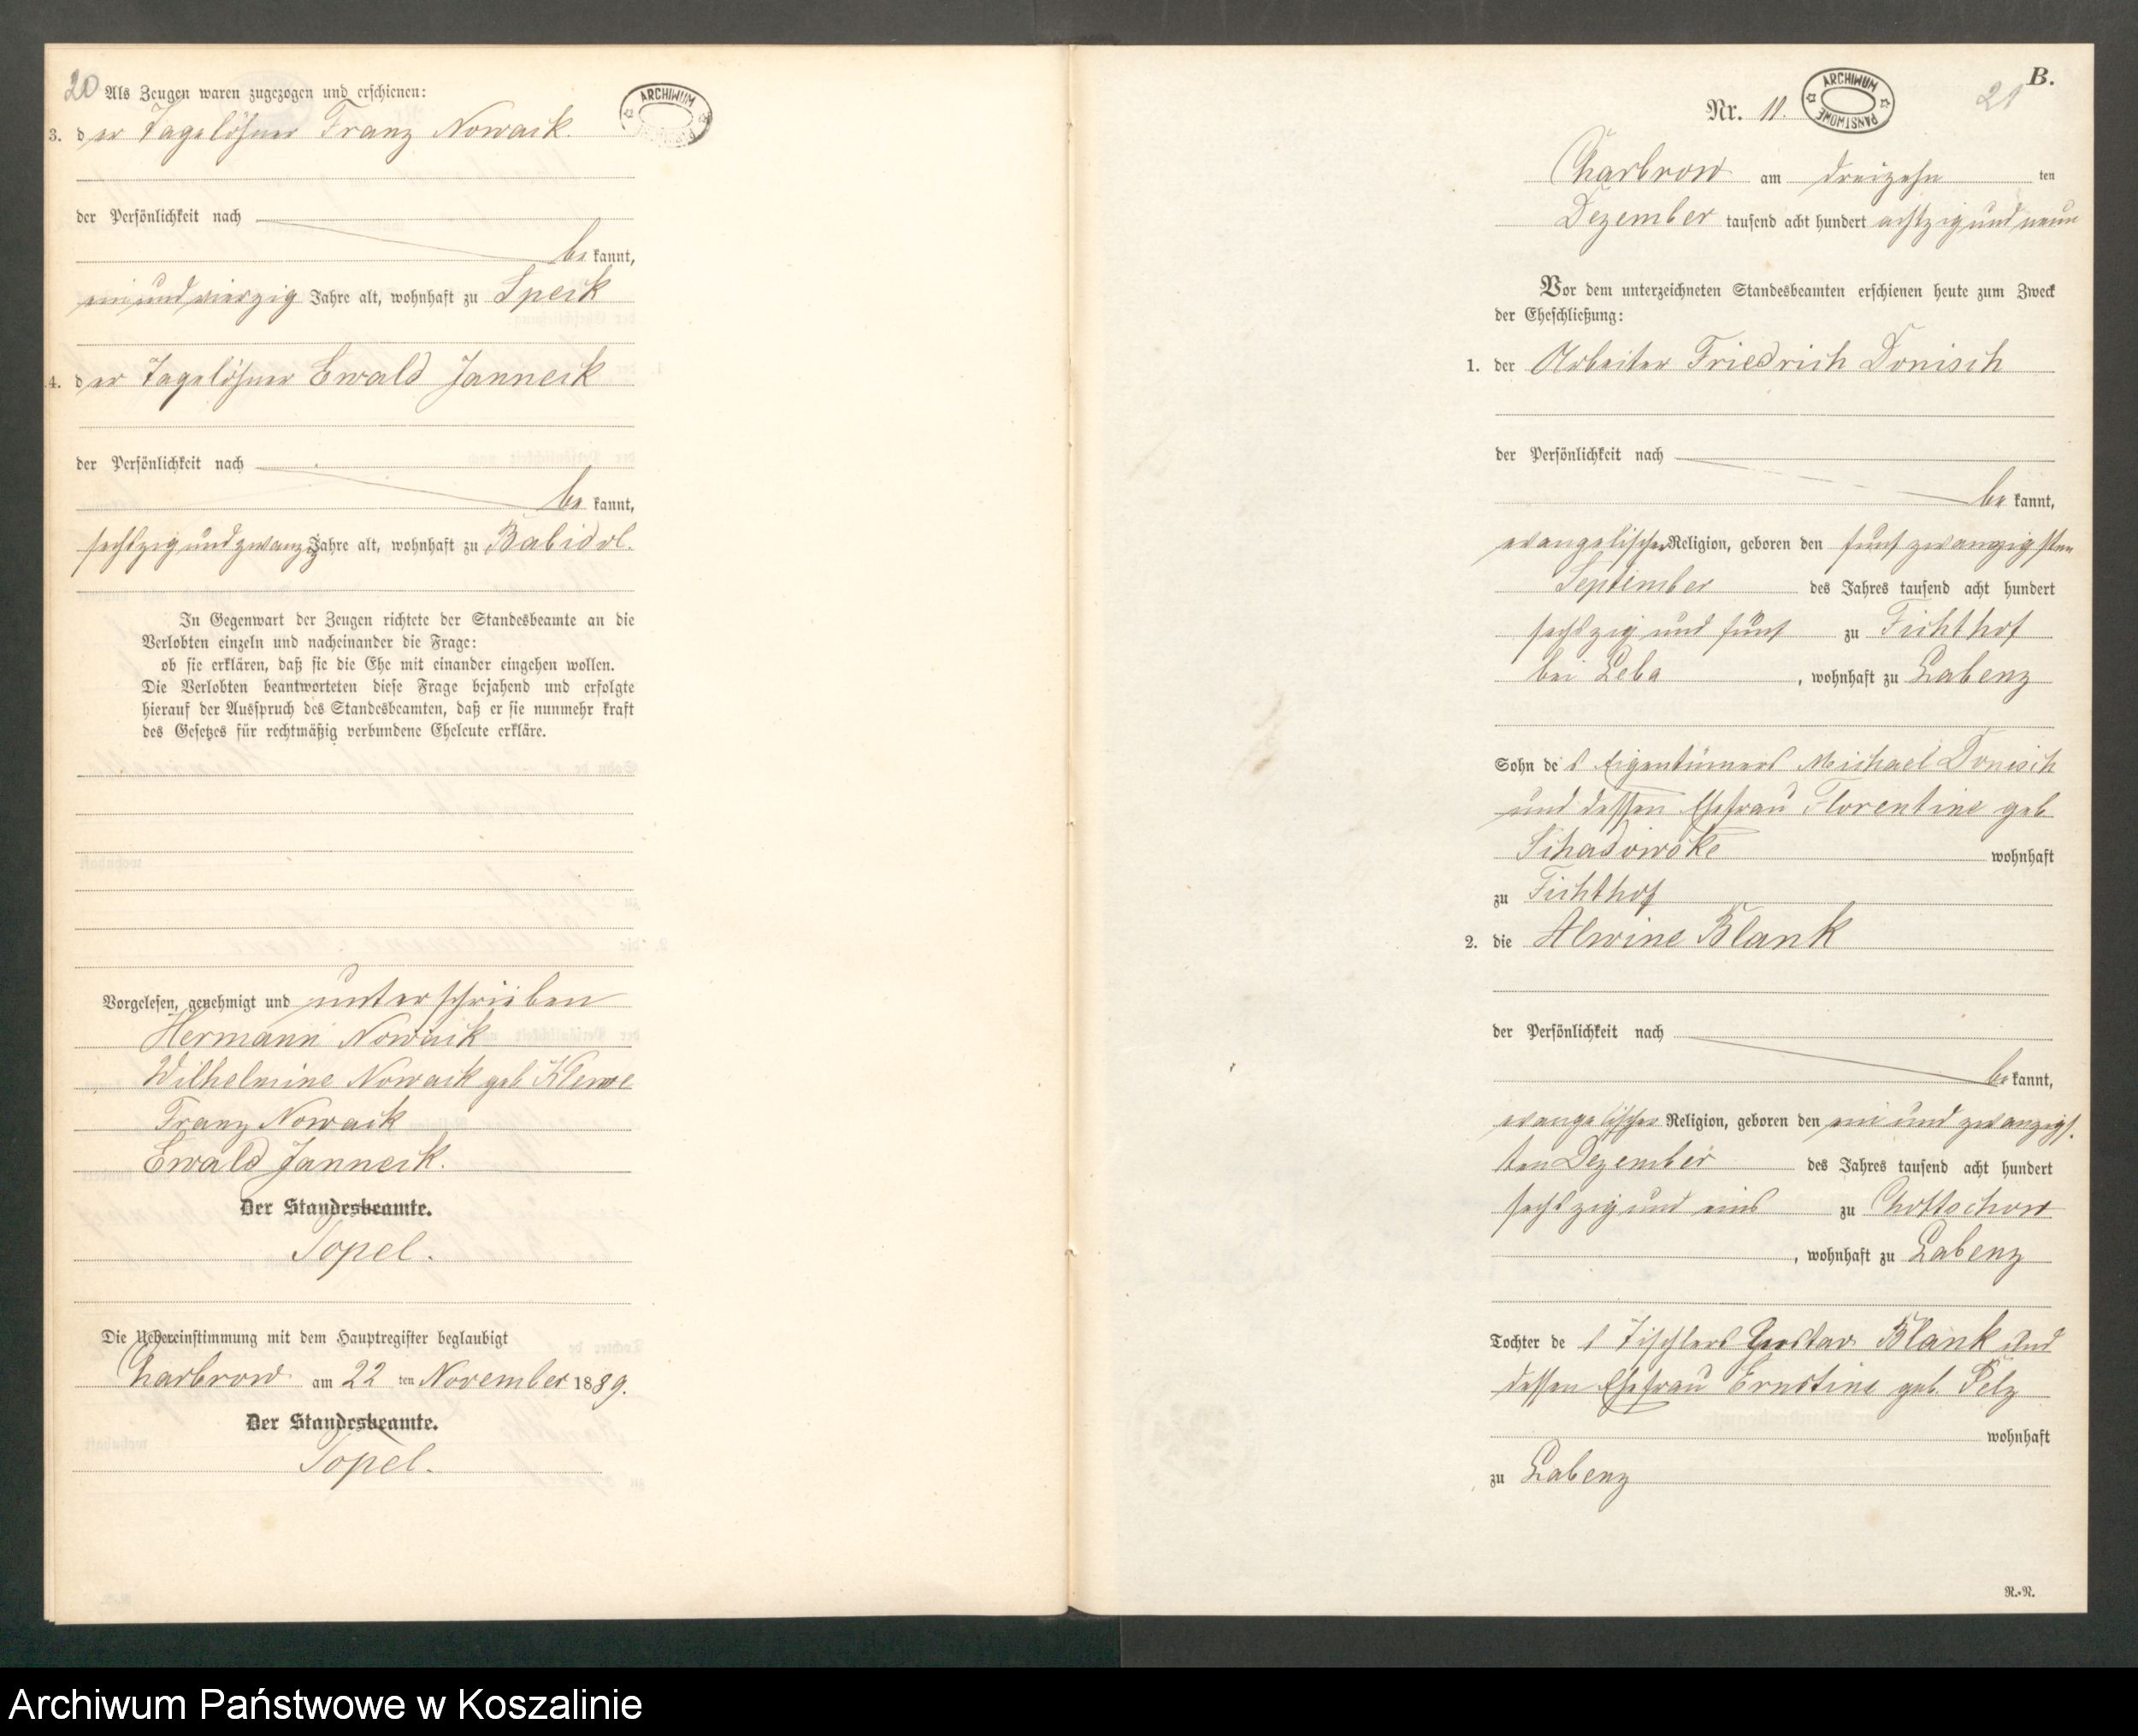 20 Als Zeugen waren zugezogen und erschienen:
ARCHIWUM
3. der Tagelöhner Franz Nowack.
der Persönlichkeit nach
bekannt,
ein und vierzig Jahre alt, wohnhaft zu Speck
4. der Tagelöhner Ewald Janneck
der Persönlichkeit nach
bekannt,
sechszig und zwanzig Jahre alt, wohnhaft zu Babidol.
In Gegenwart der Zeugen richtete der Standesbeamte an die
Verlobten einzeln und nacheinander die Frage:
ob sie erklären, daß sie die Ehe mit einander eingehen wollen.
Die Verlobten beantworteten diese Frage bejahend und erfolgte
hierauf der Ausspruch des Standesbeamten, daß er sie nunmehr kraft
des Gesetzes für rechtmäßig verbundene Eheleute erkläre.
Vorgelesen, genehmigt und unterschrieben
Hermann Nowack
Wilhelmine Nowack geb Klewe
Franz Nowack
Ewald Janneck.
Der Standesbeamte.
Topel.
Die Uebereinstimmung mit dem Hauptregister beglaubigt
Charbrow am 22 ten November 1889.
Der Standesbeamte.
Topel.
B.
Nr. 11.
ARCHIWUM PAŃSTWOWE
21
Charbrow am dreizehn ten
Dezember tausend acht hundert achtzig und neun
Vor dem unterzeichneten Standesbeamten erschienen heute zum Zweck
der Eheschließung:
1. der Arbeiter Friedrich Donisch
der Persönlichkeit nach
bekannt,
evangelischer Religion, geboren den fünf zwanzigsten
September des Jahres tausend acht hundert
sechszig und fünf zu Fichthof
bei Leba, wohnhaft zu Labenz
Sohn des Eigentümers Michael Donisch
und dessen Ehefrau Florentine geb
Schadowske wohnhaft
zu Fichthof
2. die Alwine Blank
der Persönlichkeit nach
bekannt,
evangelischer Religion, geboren den ein und zwanzigs-
ten Dezember des Jahres tausend acht hundert
sechszig und eins zu Chottschow
, wohnhaft zu Labenz
Tochter des Tischlers Gustav Blank und
dessen Ehefrau Ernstine geb. Pelz
wohnhaft
zu Labenz
R.-R.
Archiwum Państwowe w Koszalinie